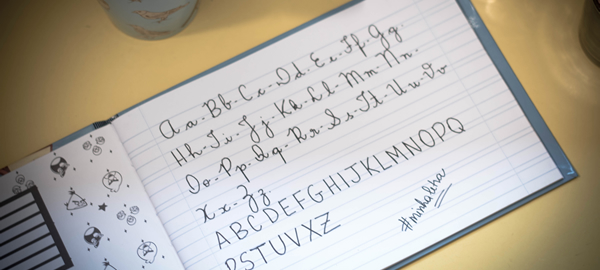 Aa - Bb - Cc - Dd - Ee - Ff - Gg -
Hh - Ii - Jj - Kk - Ll - Mm - Nn -
Oo - Pp - Qq - Rr - Ss - Tt - Uu - Vv
Xx - Zz -
ABCDEFGHIJKLMNOPQ
RSTUVXZ
#minhaletra